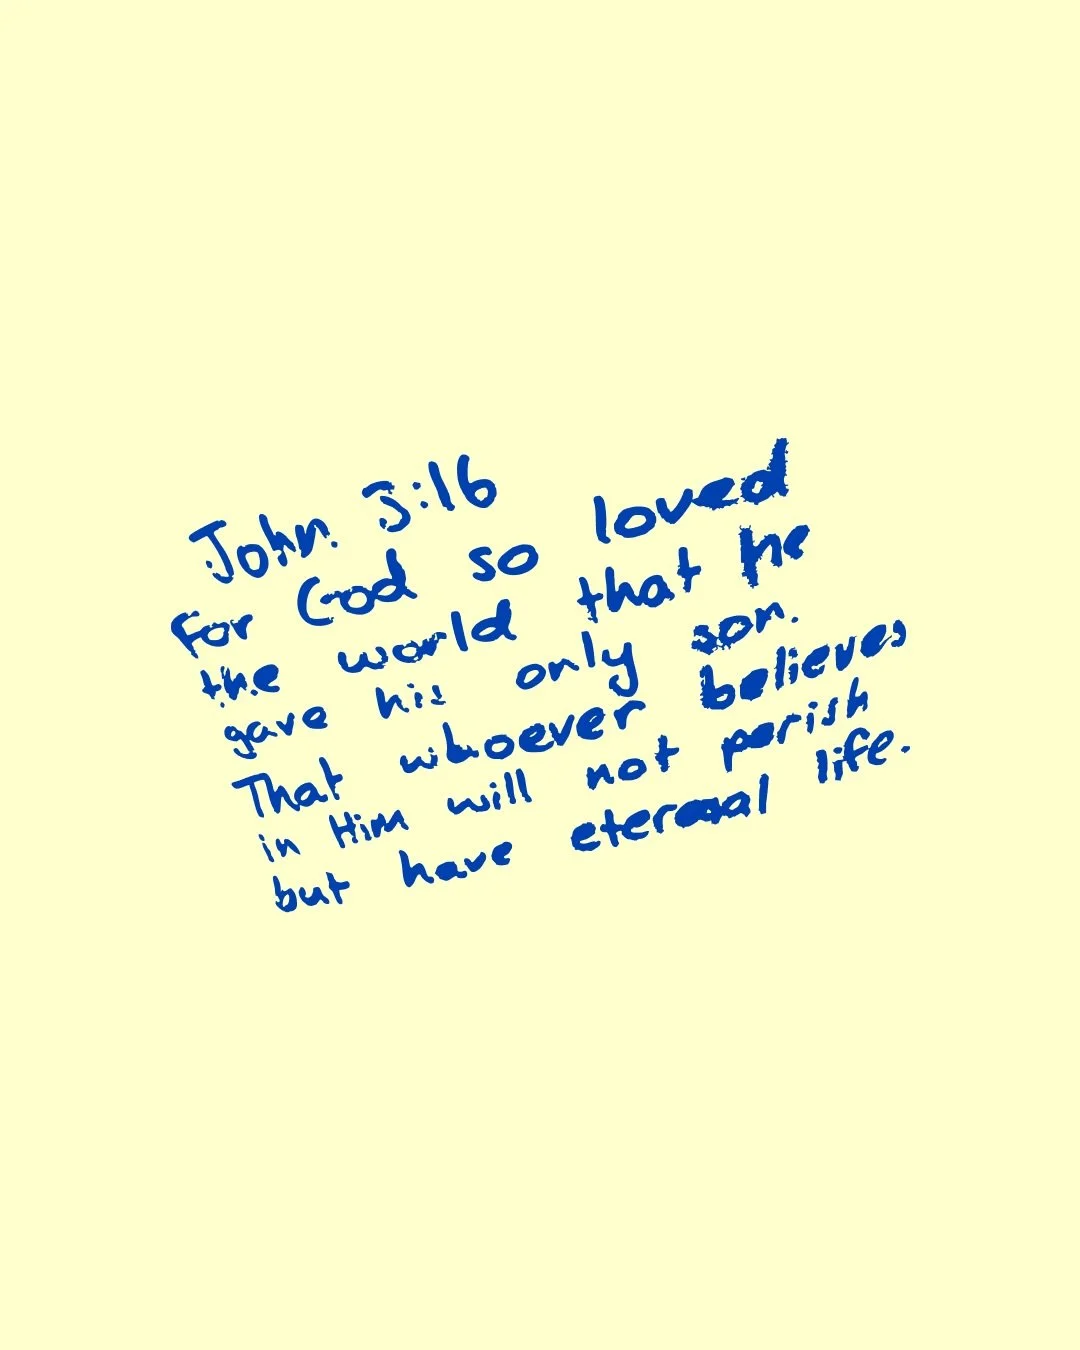 John 3:16
For God so loved
the world that he
gave his only son.
That whoever believes
in Him will not perish
but have eternal life.